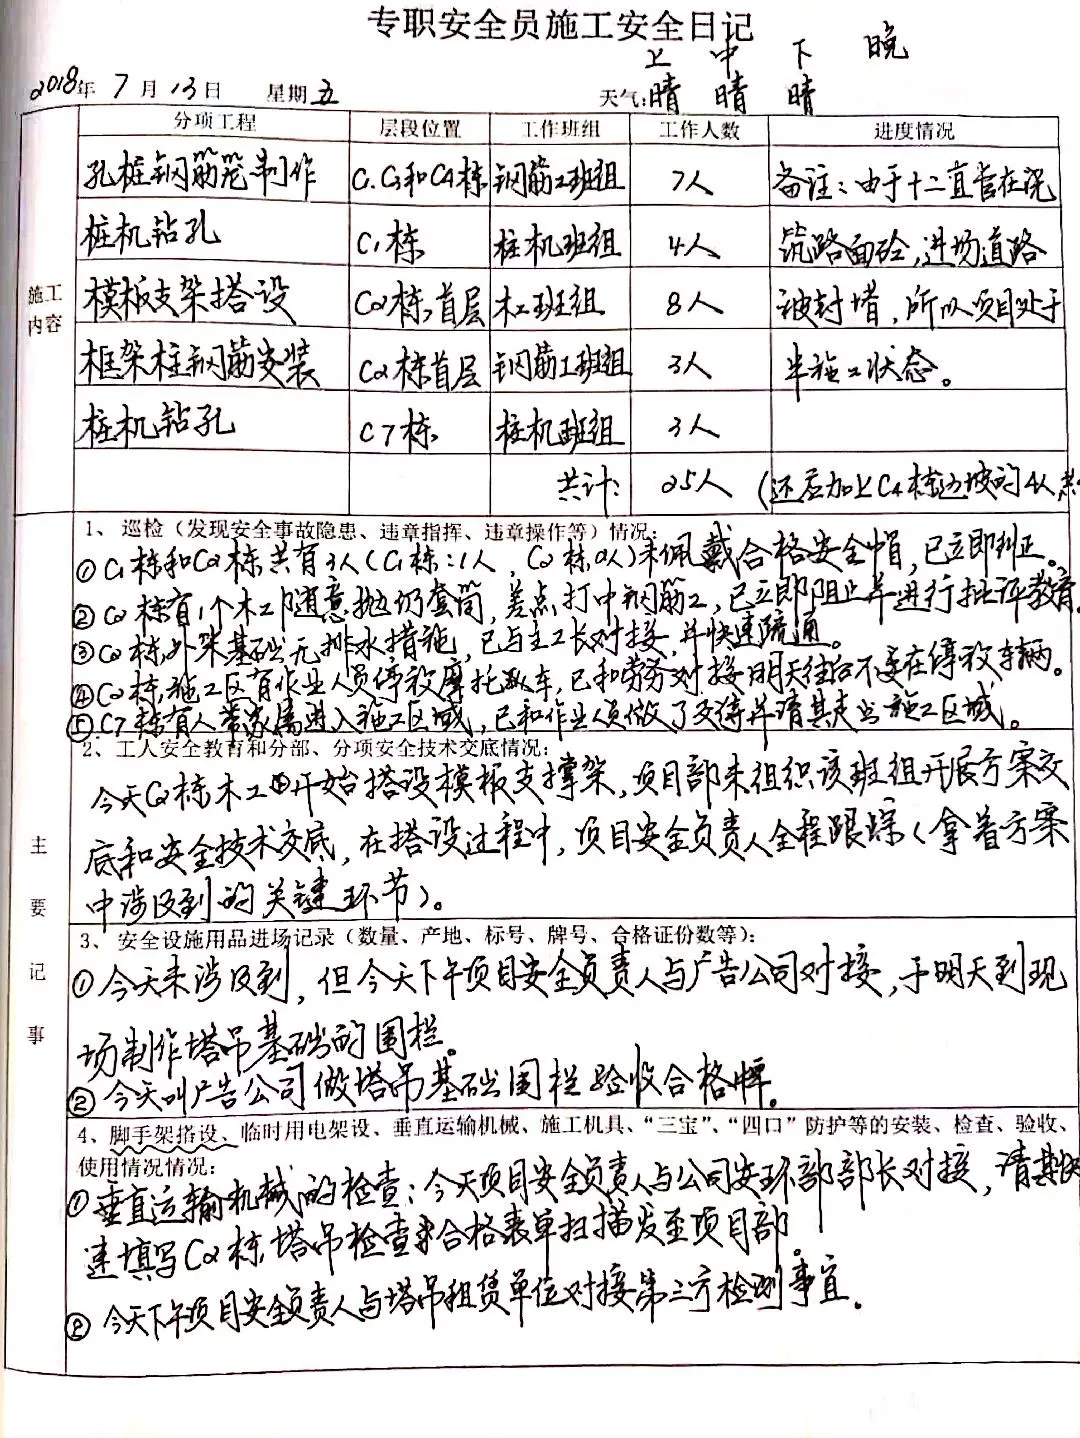 专职安全员施工安全日记
上 中 下 晚
2018年7月13日 星期五 天气:晴 晴 晴
分项工程 层段位置 工作班组 工作人数 进度情况
孔桩钢筋笼制作 C1.C3和C4栋 钢筋工班组 7人 备注:由于十二直管在浇
桩机钻孔 C1栋 桩机班组 4人 筑路面砼,进场道路
施工 模板支架搭设 C2栋,首层 木工班组 8人 被封堵,所以项目处于
内容
框架柱钢筋安装 C2栋首层 钢筋工班组 3人 半施工状态。
桩机钻孔 C7栋 桩机班组 3人
共计: 25人 (还应加上C4栋边坡的4人
1、巡检(发现安全事故隐患、违章指挥、违章操作等)情况:
①C1栋和C2栋共有3人(C1栋:1人,C2栋2人)未佩戴合格安全帽,已立即纠正。
②C2栋有1个木工随意抛扔套筒,差点打中钢筋工,已立即阻止并进行批评教育。
③C2栋,外架基础无排水措施,已与主工长对接,并快速疏通。
④C2栋,施工区有作业人员停放摩托车,已和劳务对接明天往后不要在停放车辆。
⑤C7栋有人带家属进入施工区域,已和作业人员做了交待并请其走出施工区域。
2、工人安全教育和分部、分项安全技术交底情况:
今天C2栋木工开始搭设模板支撑架,项目部未组织该班组开展方案交
底和安全技术交底,在搭设过程中,项目安全负责人全程跟踪(拿着方案
中涉及到的关键环节)。
主
要
记
事
3、安全设施用品进场记录(数量、产地、标号、牌号、合格证份数等):
①今天未涉及到,但今天下午项目安全负责人与广告公司对接,于明天到现
场制作塔吊基础的围栏。
②今天叫广告公司做塔吊基础围栏验收合格牌。
4、脚手架搭设、临时用电架设、垂直运输机械、施工机具、“三宝”、“四口”防护等的安装、检查、验收、
使用情况情况:
①垂直运输机械的检查:今天项目安全负责人与公司安环部部长对接,请其快
速填写C2栋塔吊检查合格表单扫描发至项目部。
②今天下午项目安全负责人与塔吊租赁单位对接第三方检测事宜。